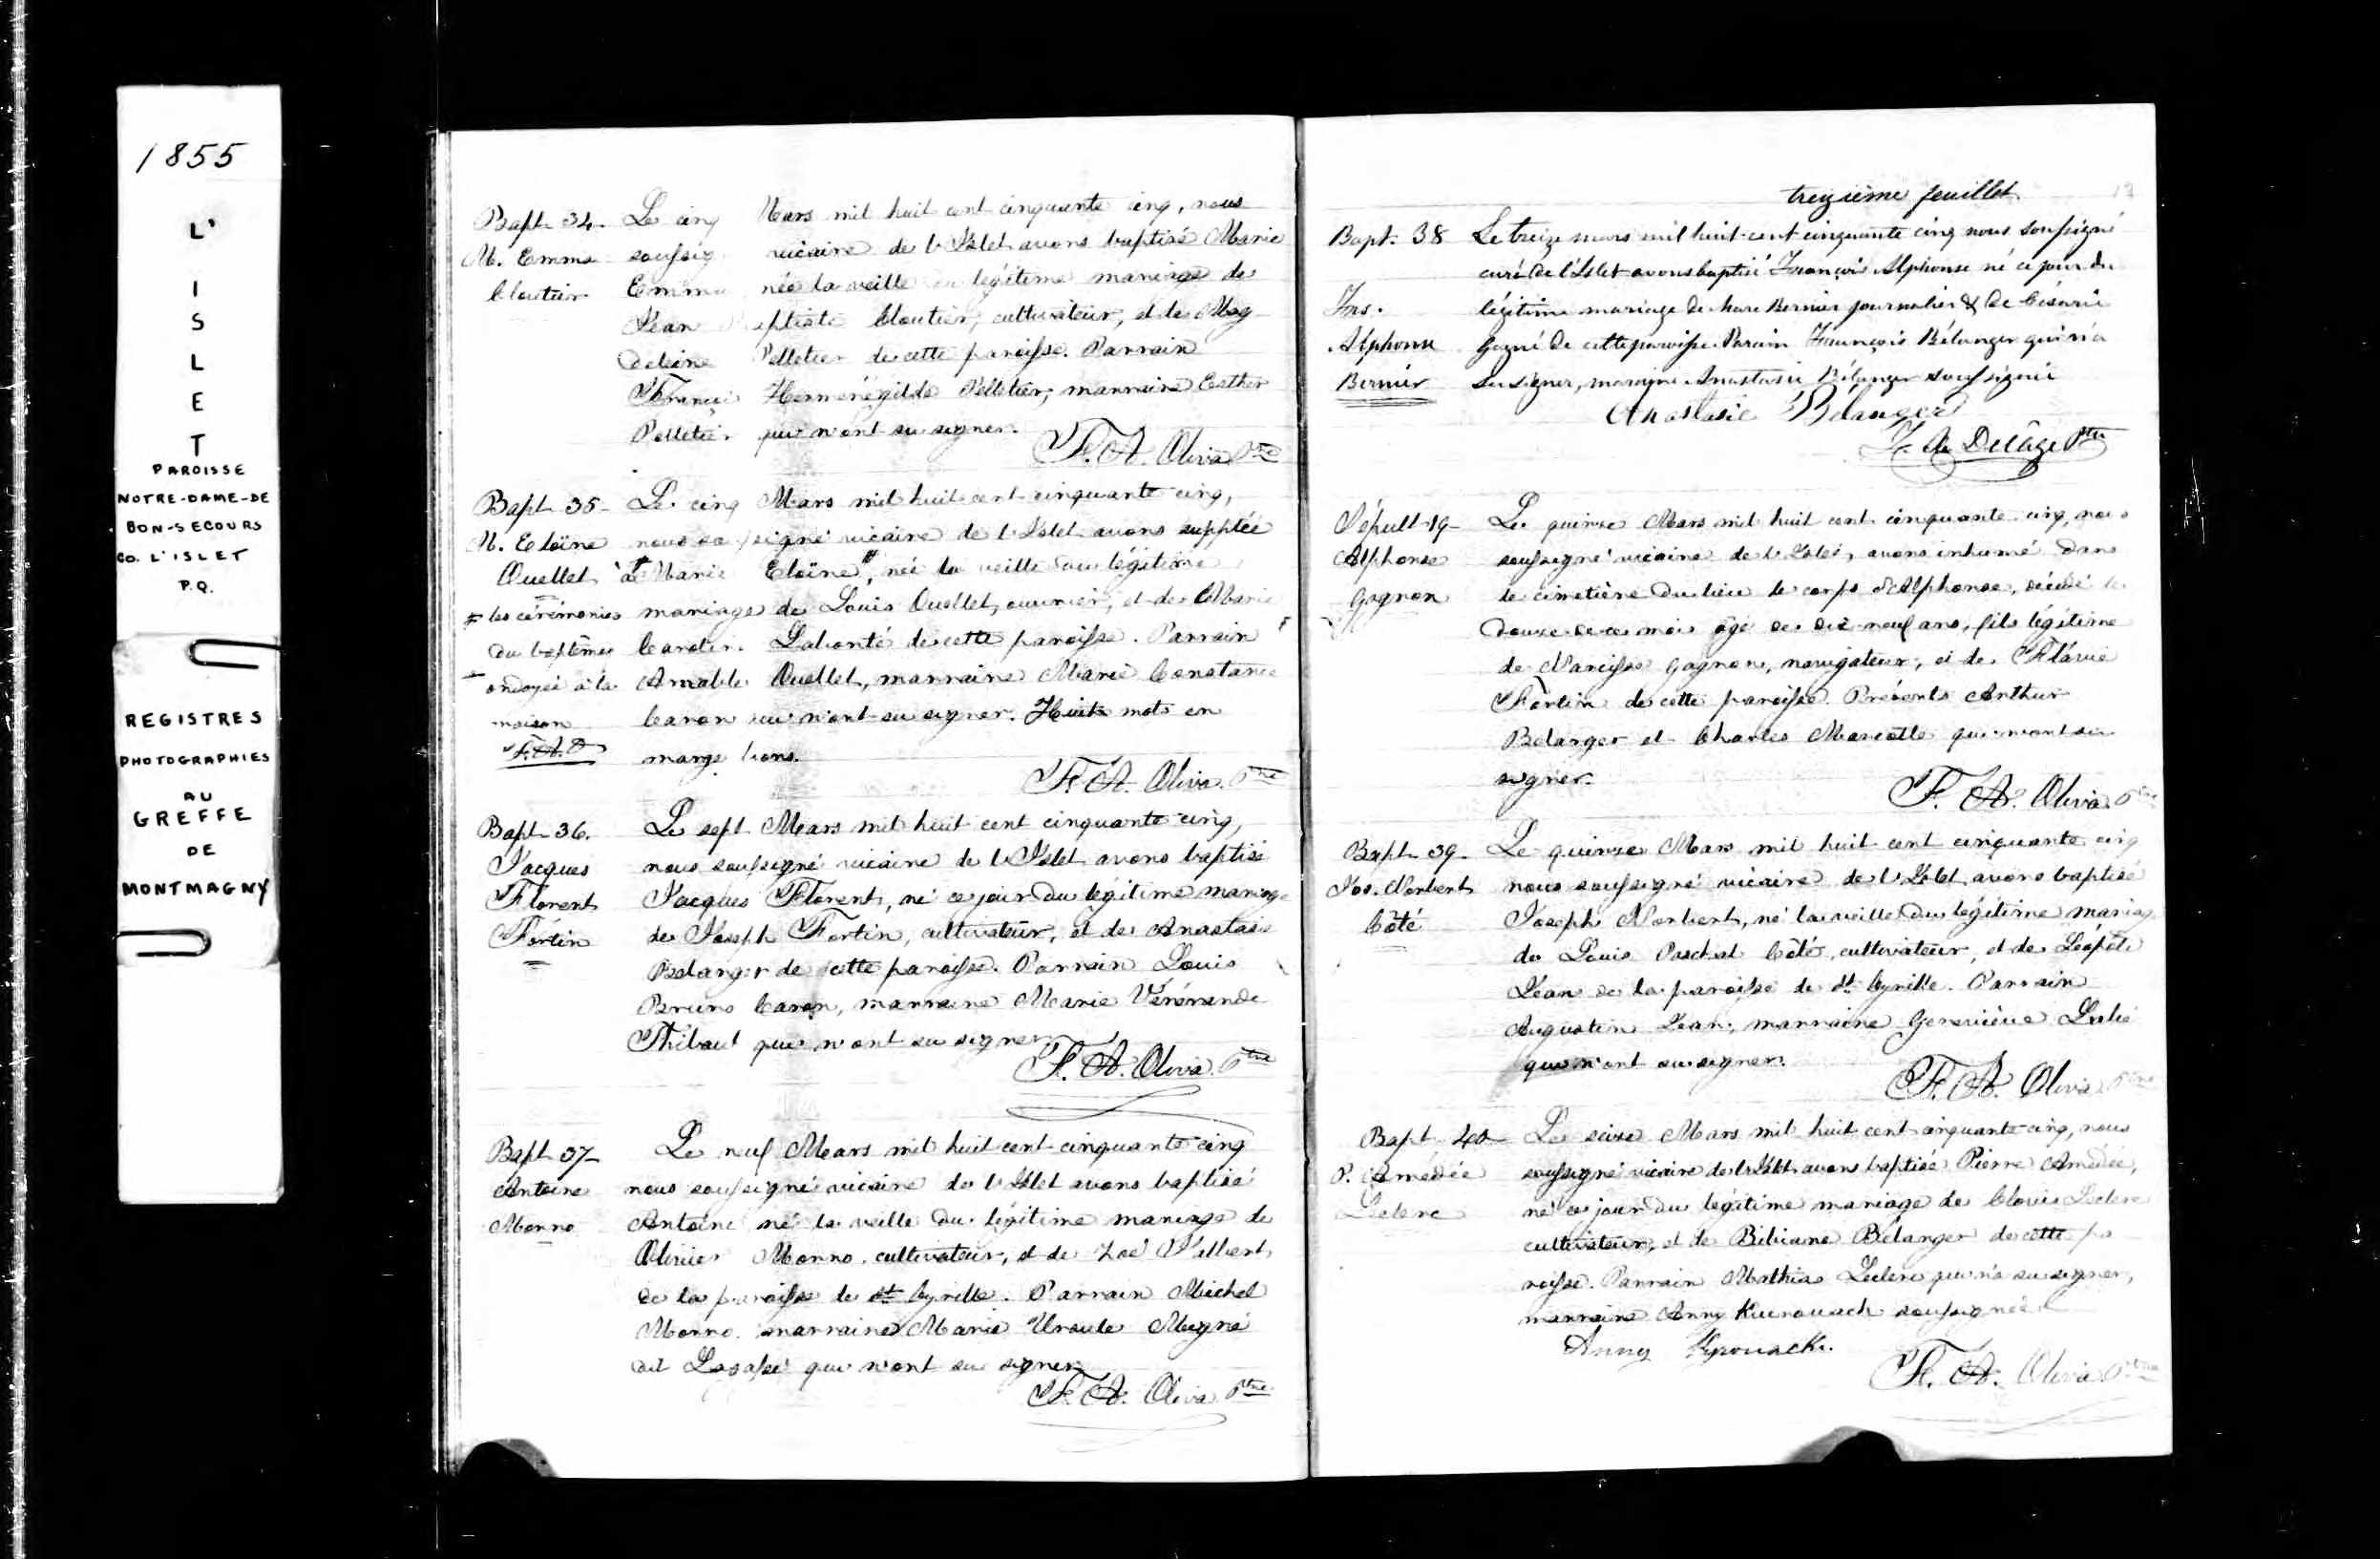 1855
L'
I
S
L
E
T
PAROISSE
NOTRE-DAME-DE
BON-SECOURS
CO. L'ISLET
P.Q.
REGISTRES
PHOTOGRAPHIES
AU
GREFFE
DE
MONTMAGNY
Bapt 34. Le cinq Mars mil huit cent cinquante cinq, nous
M. Emma soussig vicaire de l'Islet avons baptisé Marie
Cloutier Emma née la veille du légitime mariage de
Jean aptiste Cloutier, cultivateur, et de Mag
deleine Pelletier de cette paroisse. Parrain
Françi Herménégilde Pelletier, marraine Esther
Pelletier qui n'ont su signer.
F. A. Oliva Ptre
Bapt 35 Le cinq Mars mil huit cent cinquante cinq,
M. Eloïne nous soussigné vicaire de l'Islet avons supplée
Ouellet à # Marie Eloïne #, née la veille du légitime
# les cérémonies mariage de Louis Ouellet, ouvrier, et de Marie
du baptême Labonté de cette paroisse. Parrain
ondoyée à la Amable Ouellet, marraine Marie Constance
maison Caron qui n'ont su signer. Huit mots en
F.A.O marge bons.
F. A. Oliva Ptre
Bapt 36. Le sept Mars mil huit cent cinquante cinq,
Jacques nous soussigné vicaire de l'Islet avons baptisé
Florent Jacques Florent, né ce jour du légitime mariage
Fortin de Joseph Fortin, cultivateur, et de Anastasie
Belanger de cette paroisse. Parrain Louis
Bruno Caron, marraine Marie Vénérende
Thibaut qui n'ont su signer
F. A. Oliva Ptre
Bapt 37 Le neuf Mars mil huit cent cinquante cinq
Antoine nous soussigné vicaire de l'Islet avons baptisé
Monno Antoine né la veille du légitime mariage de
Olivier Monno, cultivateur, et de Zoé Jalbert,
de la paroisse de St Cyrille. Parrain Michel
Monno, marraine Marie Ursule Mugné
dit Lagassé qui n'ont su signer
F. A. Oliva Ptre
treizième feuillet 13
Bapt. 38 Le treize mars mil huit cent cinquante cinq nous soussigné
curé de l'Islet avons baptisé François Alphonse né ce jour du
Frs. légitime mariage de Marc Bernier journalier & de Césarie
Alphonse Gagné de cette paroisse. Parain François Bélanger qui n'a
Bernier su signer, maraine Anastasie Bélanger soussignée
Anastasie Bélanger
F. X. Delâge Ptre
Sépult 19 Le quinze Mars mil huit cent cinquante cinq, nous
Alphonse soussigné vicaire de l'Islet, avons inhumé dans
Gagnon le cimetière du lieu le corps d'Alphonse, décédé le
douze de ce mois âgé de dix-neuf ans, fils légitime
de Narcisse Gagnon, navigateur, et de Flavie
Fortin de cette paroisse. Présents Arthur
Belanger et Charles Marcotte qui n'ont su
signer.
F. A. Oliva Ptre
Bapt 39 Le quinze Mars mil huit cent cinquante cinq
Jos. Norbert nous soussigné vicaire de l'Islet avons baptisé
Côté Joseph Norbert, né la veille du légitime mariage
de Louis Paschal Côté, cultivateur, et de
Jean de la paroisse de St Cyrille. Parrain
Augustin Jean, marraine Geneviève
qui n'ont su signer.
F. A. Oliva Ptre
Bapt 40 Le seize Mars mil huit cent cinquante cinq, nous
P. Amédée soussigné vicaire de l'Islet avons baptisé Pierre Amédée,
Leclerc né ce jour du légitime mariage de Clovis Leclerc
cultivateur, et de Bibiane Bélanger de cette pa
roisse. Parrain Mathias Leclerc qui n'a su signer,
marraine Anny Kuerouack soussignée
Anny Kyrouack.
F. A. Oliva Ptre